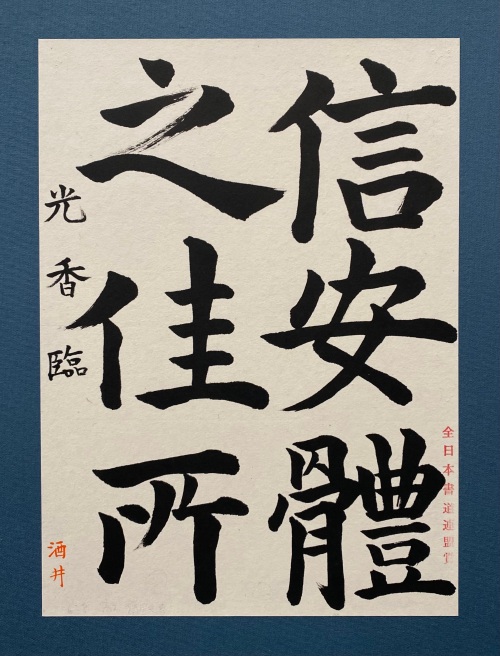 信安體
之佳所
光香臨
酒井
全日本書道連盟賞